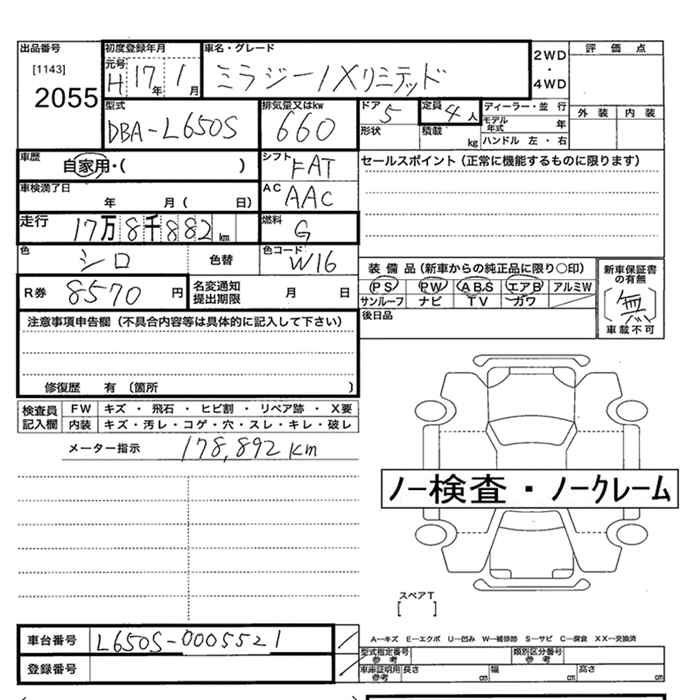 出品番号 初度登録年月 車名・グレード 評価点
[1143] 元号 2WD
2055 H17年1月 ミラジーノXリミテッド ・
4WD
型式 排気量又はkw ドア 定員 ディーラー・並行 外装 内装
DBA-L650S 660 5 4人 モデル年式 年
形状 積載 kg ハンドル 左・右
車歴 自家用・( ) シフト FAT セールスポイント(正常に機能するものに限ります)
車検満了日 年 月( 日) AC AAC
走行 17万8千882km 燃料 G
色 シロ 色替 色コード W16
装備品(新車からの純正品に限り○印) 新車保証書の有無
R券 8570円 名変通知提出期限 月 日 PS PW ABS エアB アルミW 無
サンルーフ ナビ TV カワ 車載不可
注意事項申告欄(不具合内容等は具体的に記入して下さい) 後日品
修復歴 有(箇所 )
検査員記入欄 FW キズ・飛石・ヒビ割・リペア跡・X要
内装 キズ・汚レ・コゲ・穴・スレ・キレ・破レ
メーター指示 178,892km
ノー検査・ノークレーム
スペアT
[ ]
車台番号 L650S-0005521 A―キズ E―エクボ U―凹み W―補修跡 S―サビ C―腐食 XX―交換済
型式指定番号 参考 類別区分番号 参考
登録番号 車庫証明用参考 長さ cm 幅 cm 高さ cm